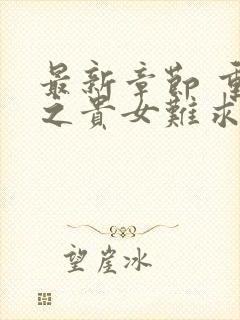 最新章節 重
之貴女難求
望崖冰